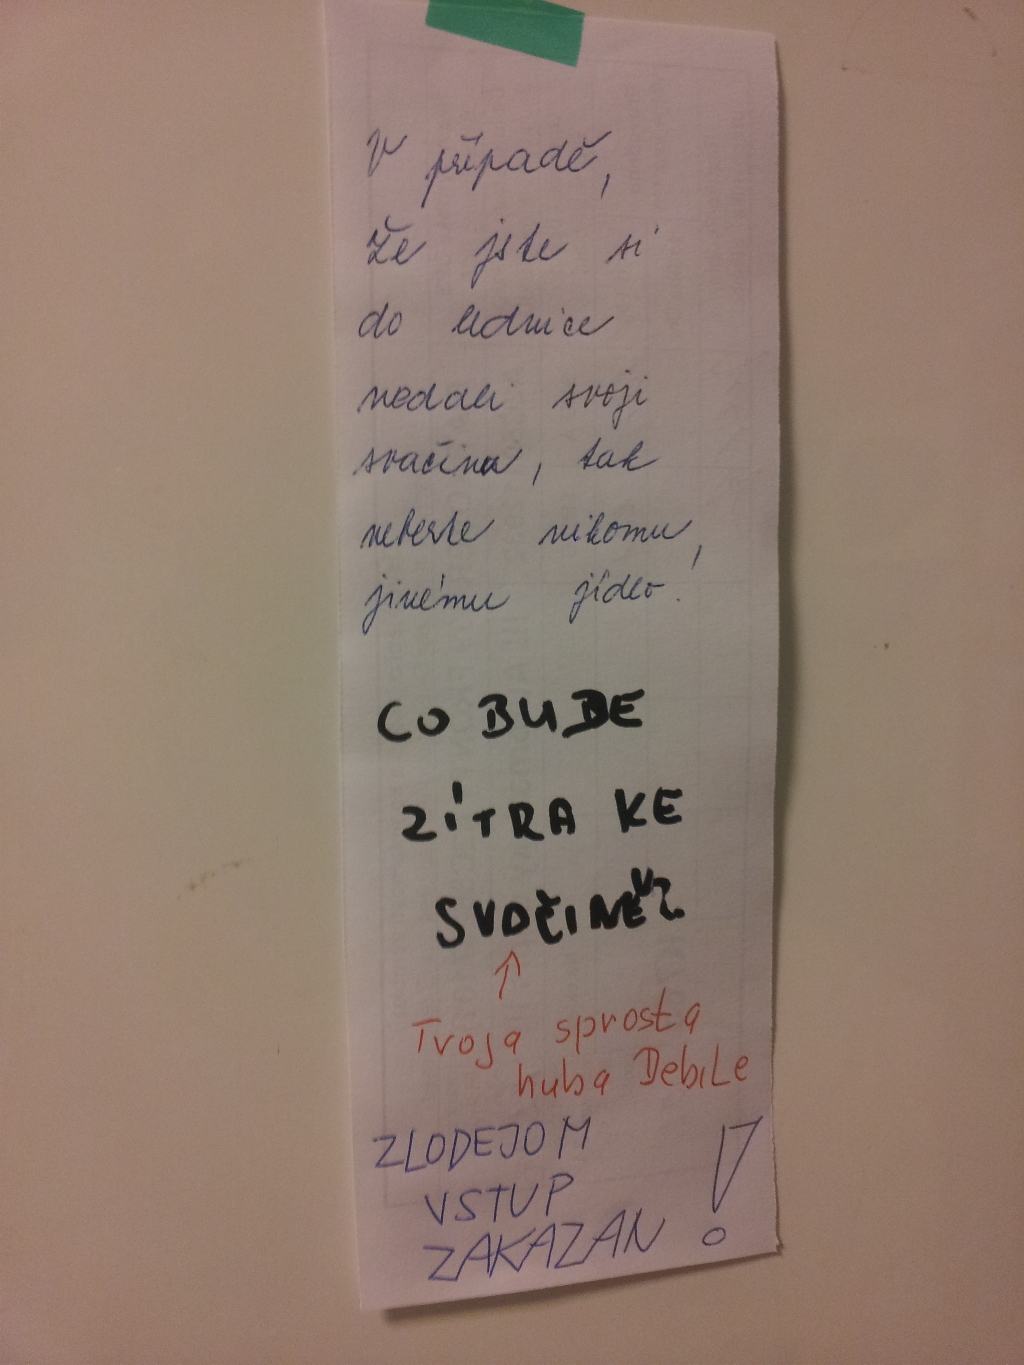 V případě,
že jste si
do lednice
nedali svoji
svačinu, tak
neberte nikomu
jinému jídlo!
CO BUDE
ZÍTRA KE
SVAČINĚ?
↑
Tvoja sprosta
huba DebiLe
ZLODEJOM
VSTUP
ZAKAZAN !